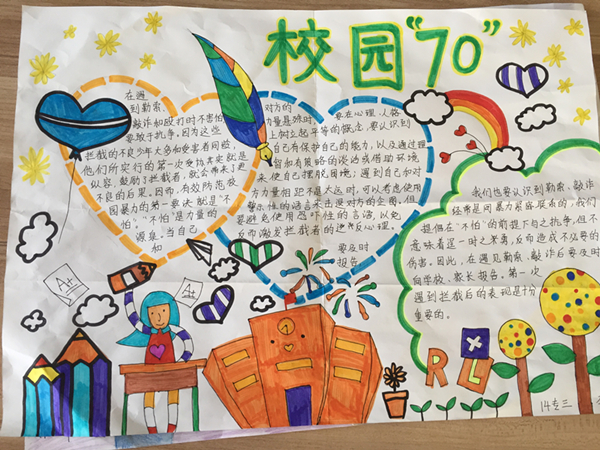 校园“70”
在遇
到勒索、
敲诈和殴打时不害怕
要敢于抗争。因为这些
拦截的不良少年大多和受害者同龄,
他们所实行的第一次受均其实就是
纵容、鼓励了拦截者,就会带来更
不良的后果。因而,有效防范校
园暴力的第一要诀就是“不
怕”。“不怕”是力量的
源泉。当自己
和
对方的
力量悬殊时
要在心理、人格
上树立起平等的概念,要认识到
自己有保护自己的能力,以及通过理
智和有策略的谈话或借助环境
来使自己摆脱困境;遇到自己和对
方力量相距不是大远时,可以考虑使用
警示性的语言来击退对方的企图,但
要避免使用恐吓性的言语,以免
反而激发拦截者的逆反心理。
要及时
报告
我们也要认识到勒索、敲诈
经常是同暴力紧密联系的,我们
提倡在“不怕”的前提下与之抗争,但不
意味着逞一时之英勇,反而造成不必要的
伤害。因此,在遇见勒索、敲诈后要及时
向学校、家长报告。第一次
遇到拦截后的表现是十分
重要的。
A+
A+
R L
14专三